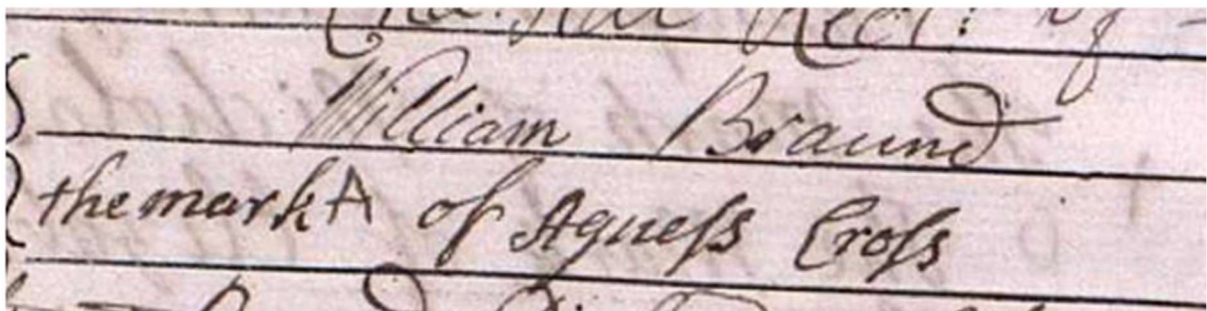 William Braund
the mark A of Agneſs Croſs